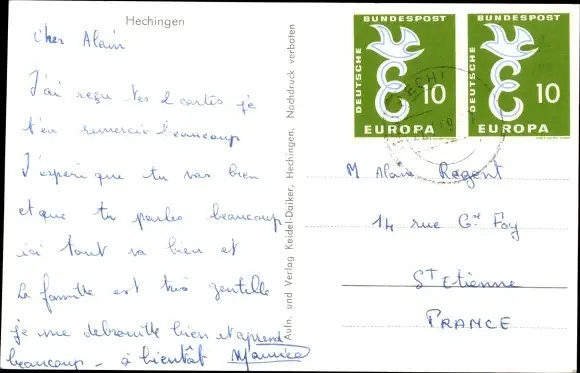 Hechingen
cher Alain
J'ai reçu tes 2 cartes je
t'en remercie beaucoup
J'espère que tu vas bien
et que tu parles beaucoup
ici tout va bien et
la famille est très gentille
je me debrouille bien et apprend
beaucoup - à bientôt Maurice
Aufn. und Verlag Keidel-Daiker, Hechingen. Nachdruck verboten
DEUTSCHE BUNDESPOST
10
EUROPA
DEUTSCHE BUNDESPOST
10
EUROPA
HECHI
M Alain Regent
14 rue Gal Foy
St Etienne
FRANCE